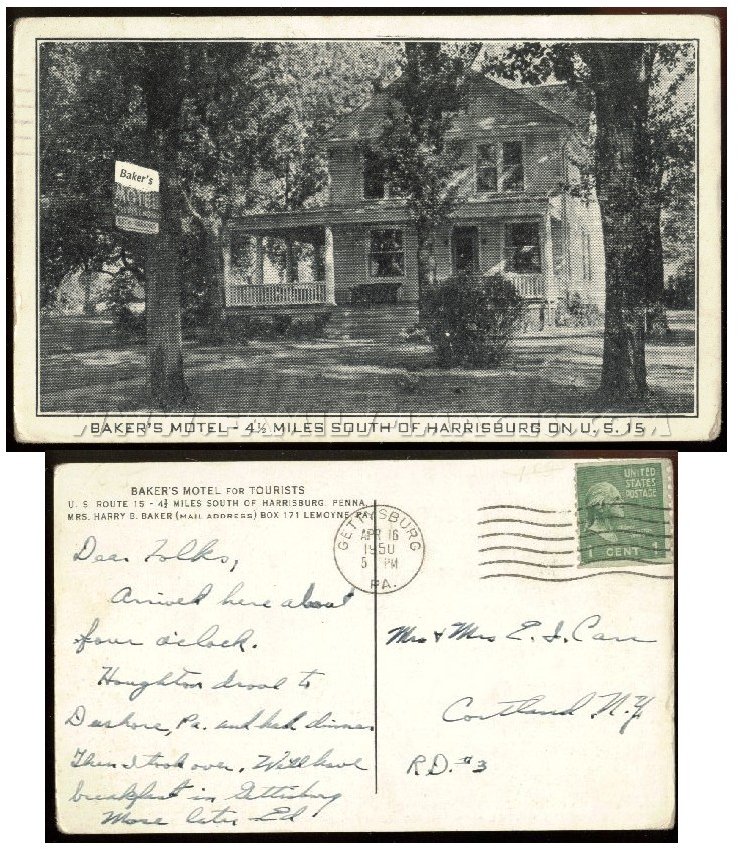 Baker's
BAKER'S MOTEL - 4½ MILES SOUTH OF HARRISBURG ON U. S. 15
BAKER'S MOTEL FOR TOURISTS
U. S. ROUTE 15 - 4½ MILES SOUTH OF HARRISBURG, PENNA.
MRS. HARRY B. BAKER (MAIL ADDRESS) BOX 171 LEMOYNE PA.
GETTYSBURG
APR 16
1950
5 PM
PA.
UNITED
STATES
POSTAGE
1 CENT 1
Dear Folks,
Arrived here about
four o'clock.
Houghton drove to
Dushore, Pa. and had dinner.
Then I took over. Will have
breakfast in Gettisburg
More later Ed
Mr & Mrs E. J. Carr
Cortland N.Y.
R.D. #3